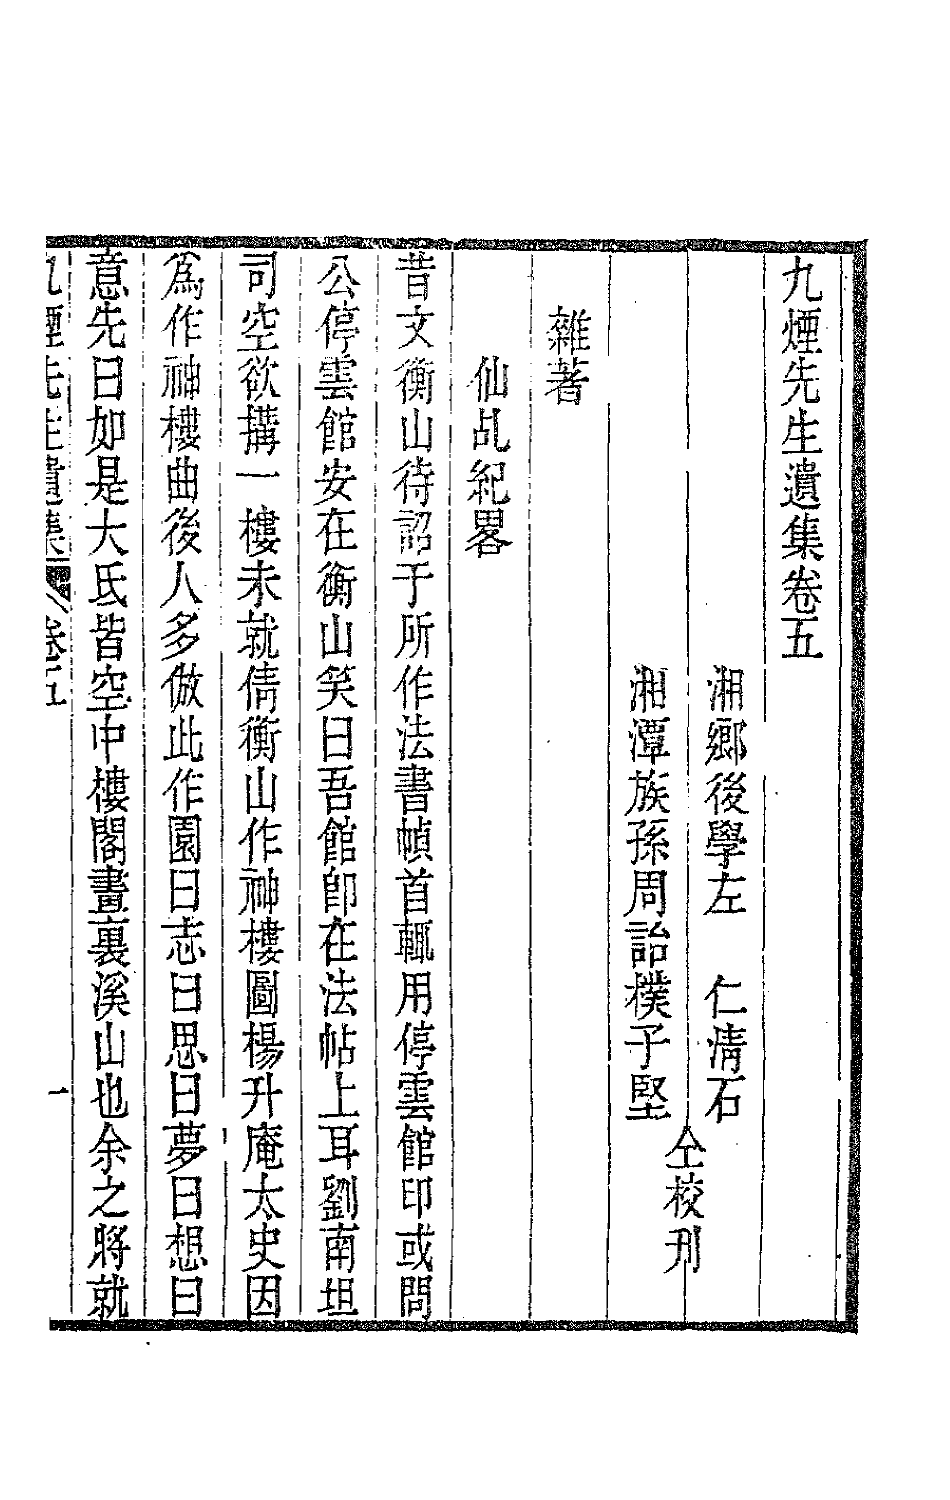 九煙先生遺集卷五
湘鄉後學左　仁淸石
湘潭族孫周詒樸子堅
仝校刋
雜著
仙乩紀畧
昔文衡山待詔于所作法書幀首輒用停雲館印或問
公停雲館安在衡山笑曰吾館卽在法帖上耳劉南坦
司空欲搆一樓未就倩衡山作神樓圖楊升庵太史因
爲作神樓曲後人多倣此作園曰志曰思曰夢曰想曰
意先曰如是大氐皆空中樓閣畫裏溪山也余之將就
九煙先生遺集
卷五
一